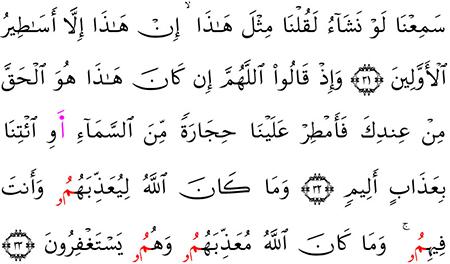 سَمِعْنَا لَوْ نَشَآءُ لَقُلْنَا مِثْلَ هَٰذَا ۙ إِنْ هَٰذَا إِلَّا أَسَٰطِيرُ
اُ۬لْأَوَّلِينَ ۝٣١ وَإِذْ قَالُوا۟ اُ۬للَّهُمَّ إِن كَانَ هَٰذَا هُوَ اَ۬لْحَقَّ
مِنْ عِندِكَ فَأَمْطِرْ عَلَيْنَا حِجَارَةً مِّنَ اَ۬لسَّمَآءِ أَوِ اِ۪ئْتِنَا
بِعَذَابٍ أَلِيمٍ ۝٣٢ وَمَا كَانَ اَ۬للَّهُ لِيُعَذِّبَهُمُۥ وَأَنتَ
فِيهِمُۥ ۚ وَمَا كَانَ اَ۬للَّهُ مُعَذِّبَهُمُۥ وَهُمُۥ يَسْتَغْفِرُونَ ۝٣٣